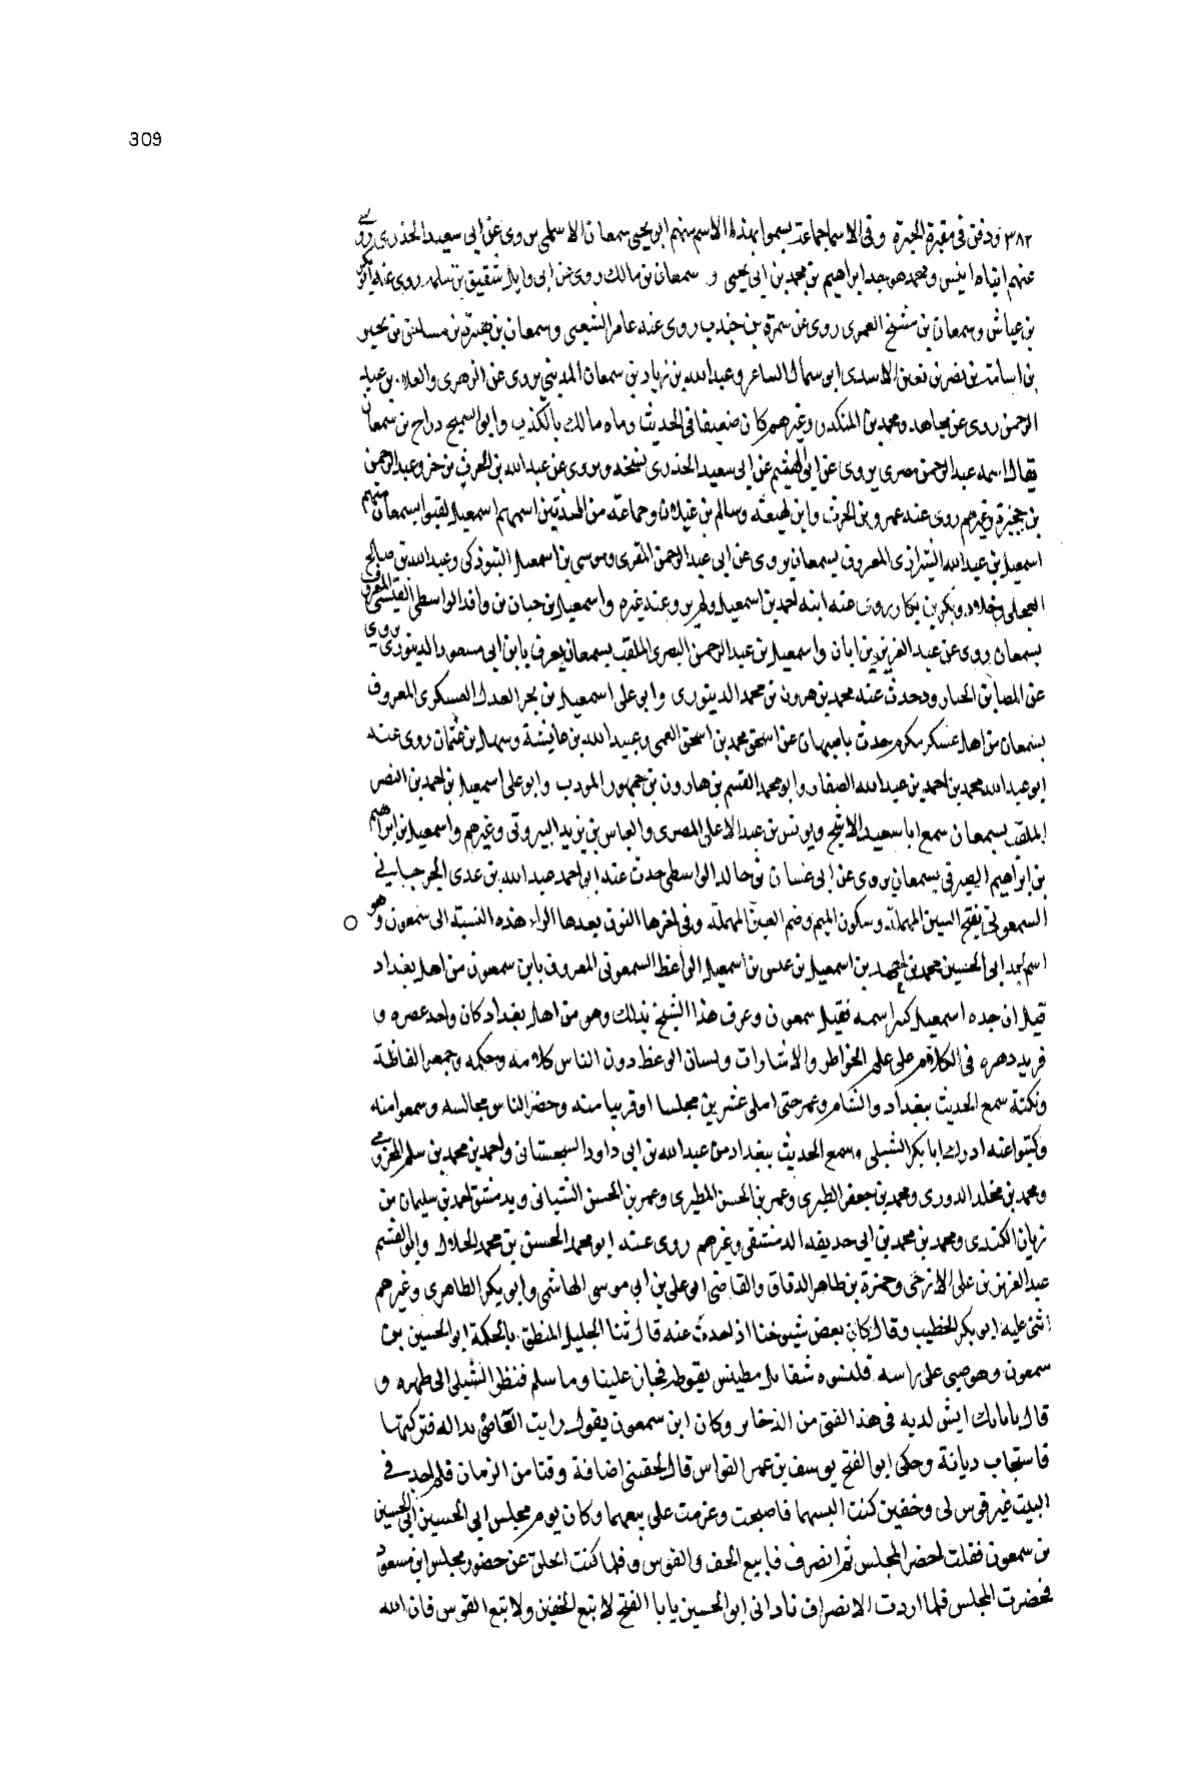 309
٣٨٢ ودفن فى مقبرة الحيرة وفى الاسما جماعة يسموا بهذا الاسم منهم ابو يحيى سمعان الاسلمى يروى عن ابى سعيد الخدرى روى
عنهم ابناه انيس ومحمد هو جد ابراهيم بن محمد بن ابى يحيى و سمعان بن مالك روى عن ابى وايل شقيق بن سلمه روى عنه ابو بكر
بن عياش وسمعان بن مشنج العمرى روى عن سمرة بن جندب روى عنه عامر الشعبى وسمعان بن هبيرة بن مساحق بن بحير
بن اسامة بن نصر بن قعين الاسدى ابو سماك الساعر وعبد الله بن زياد بن سمعان المدينى يروى عن الزهرى والعلاء بن عبد
الرحمن روى عن مجاهد ومحمد بن المنكدر وغيرهم كان ضعيفا فى الحديث رماه مالك بالكذب وابو السميح دراج بن سمعان
يقال اسمه عبد الرحمن مصرى يروى عن ابى الهيثم عن ابى سعيد الخدرى بنسخه ويروى عن عبد الله بن الحرث بن جزء وعبد الرحمن
بن حجيرة وغيرهم روى عنه عمرو بن الحرث وابن لهيعه وسالم بن غيلان وجماعة من المحدثين اسمهم اسمعيل لقبوا بسمعان منهم
اسمعيل بن عبد الله الشيرازى المعروف بسمعان يروى عن ابى عبد الرحمن المقرى وموسى بن اسمعيل التبوذكى وعبد الله بن صالح
العجلى وخلاد وبكر بن بكار روى عنه ابنه احمد بن اسمعيل ولم يرو عنه غيره واسمعيل بن حيان بن واقد الواسطى القيسى المعروف
بسمعان روى عن عبد العزيز بن ابان واسمعيل بن عبد الرحمن البصرى الملقب بسمعان يعرف بابن ابى مسعود الدينورى يروى
عن الصابى الحبار وحدث عنه محمد بن هرون بن محمد الدينورى وابو على اسمعيل بن بحر العدل العسكرى المعروف
بسمعان من اهل عسكر مكرم حدث باصبهان عن اسحق محمد بن اسحق العمى وعبيد الله بن عايشة وسهل بن عثمان روى عنه
ابو عبد الله محمد بن احمد بن عبد الله الصفار وابو محمد القسم بن هارون بن جمهور المودب وابو على اسمعيل بن احمد بن النصر
الملقب بسمعان سمع ابا سعيد الاشج ويونس بن عبد الاعلى المصرى والعباس بن يزيد البيروتى وغيرهم واسمعيل بن ابراهيم
بن ابراهيم الصيرفى بسمعان يروى عن ابى غسان بن خالد الواسطى حدث عنه ابو احمد عبد الله بن عدى الجرجانى
السمعونى بفتح السين المهملة وسكون الميم وضم العين المهملة وفى اخرها النون بعدها الواو هذه النسبة الى سمعون وهو
اسم لجد ابى الحسين محمد بن احمد بن اسمعيل بن عيسى بن اسمعيل الواعظ السمعونى المعروف بابن سمعون من اهل بغداد
قيل ان جده اسمعيل كبر اسمه فقيل سمعون وعرف هذا الشيخ بذلك وهو من اهل بغداد كان واحد عصره و
فريد دهره فى الكلام على علم الخواطر والاشارات ولسان الوعظ دون الناس كلامه وحكمه وجمعوا الفاظة
ونكتة سمع الحديث ببغداد والشام وعمر حتى املى عشرين مجلسا او قريبا منه وحضر الناس مجالسه وسمعوا منه
وكتبوا عنه ادرك ابا بكر الشبلى وسمع الحديث ببغداد من عبد الله بن ابى داود السجستانى واحمد بن محمد بن سلم المخرمى
ومحمد بن مخلد الدورى ومحمد بن جعفر الطبرى وعمر بن الحسن المطيرى وعمر بن الحسن الشيبانى وبدمشق احمد بن سليمان بن
زبان الكندى ومحمد بن محمد بن ابى حذيفه الدمشقى وغيرهم روى عنه ابو محمد الحسن بن محمد الخلال وابو القسم
عبد العزيز بن على الازجى وحمزة بن طاهر الدقاق والقاضى ابو على بن ابى موسى الهاشمى وابو بكر الطاهرى وغيرهم
اثنى عليه ابو بكر الخطيب وقال كان بعض شيوخنا اذا حدث عنه قال ثنا الجليل المنطق بالحكمة ابو الحسين بن
سمعون وهو صبى على راسه قلنسوه بفوطه فجاز علينا وما سلم فنظر الشبلى الى ظهره و
قال يا بابك ايش لديه فى هذا الفتى من الذخاير وكان ابن سمعون يقول رايت المعاصى نداله فتركتها
فاستحاب ديانة وحكى ابو الفتح يوسف بن عمر القواس قال لحقتنى اضاقة وقتا من الزمان فلم اجد فى
البيت غير قوس لى وخفين كنت البسهما فاصبحت وعزمت على بيعهما وكان يوم مجلس ابى الحسين ابى الحسين
بن سمعون فقلت احضر المجلس ثم انصرف فابيع الخف والقوس وقلما كنت اتخلى عن حضور مجلس ابن سمعون
فحضرت المجلس فلما اردت الانصراف نادانى ابو الحسين يابا الفتح لا تبع الخفين ولا تبع القوس فان الله